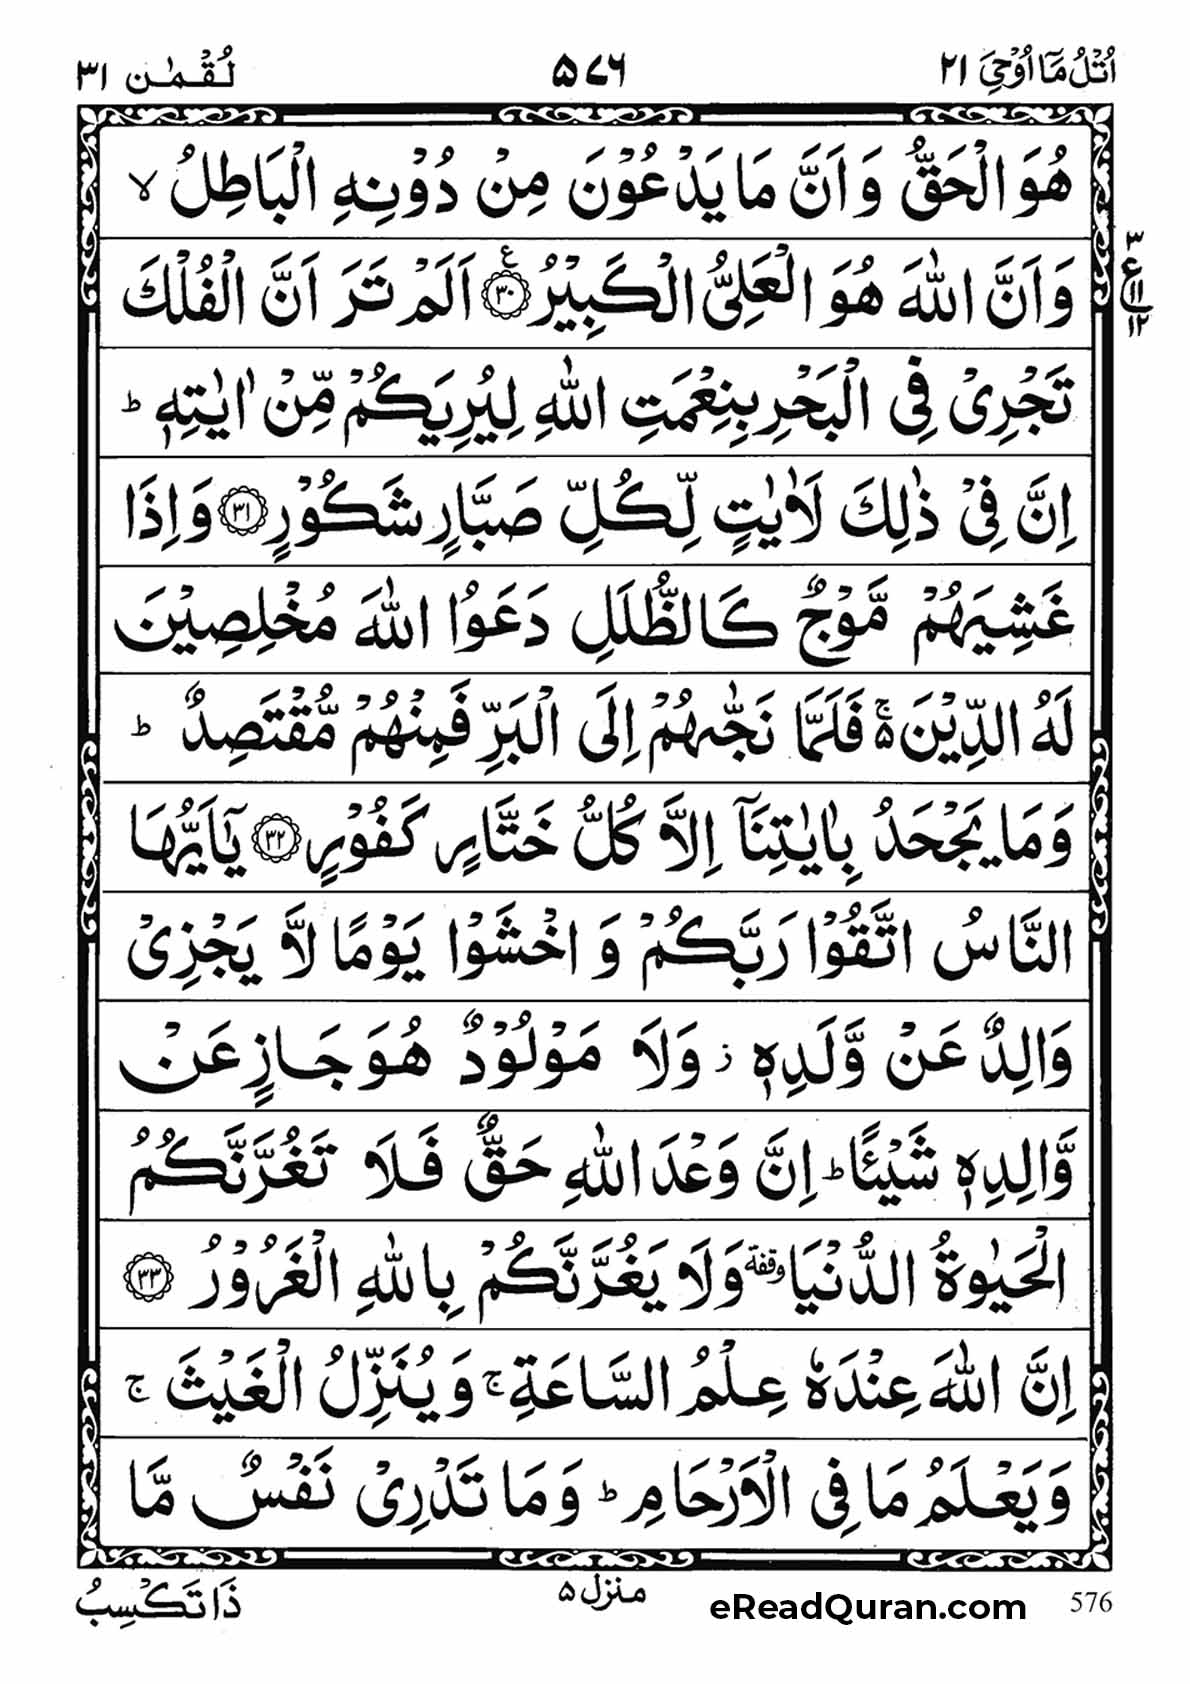 اُتْلُ مَآ اُوْحِيَ ٢١
٥٧٦
لُقْمٰن ٣١
هُوَ الْحَقُّ وَ اَنَّ مَا يَدْعُوْنَ مِنْ دُوْنِهِ الْبَاطِلُ ۙ
وَ اَنَّ اللّٰهَ هُوَ الْعَلِيُّ الْكَبِيْرُ ﴿٣٠﴾ ع اَلَمْ تَرَ اَنَّ الْفُلْكَ
تَجْرِىْ فِى الْبَحْرِ بِنِعْمَتِ اللّٰهِ لِيُرِيَكُمْ مِّنْ اٰيٰتِهٖ ؕ
اِنَّ فِىْ ذٰلِكَ لَاٰيٰتٍ لِّكُلِّ صَبَّارٍ شَكُوْرٍ ﴿٣١﴾ وَ اِذَا
غَشِيَهُمْ مَّوْجٌ كَالظُّلَلِ دَعَوُا اللّٰهَ مُخْلِصِيْنَ
لَهُ الدِّيْنَ ۚ۬ فَلَمَّا نَجّٰىهُمْ اِلَى الْبَرِّ فَمِنْهُمْ مُّقْتَصِدٌ ؕ
وَمَا يَجْحَدُ بِاٰيٰتِنَاۤ اِلَّا كُلُّ خَتَّارٍ كَفُوْرٍ ﴿٣٢﴾ يٰۤاَيُّهَا
النَّاسُ اتَّقُوْا رَبَّكُمْ وَ اخْشَوْا يَوْمًا لَّا يَجْزِىْ
وَالِدٌ عَنْ وَّلَدِهٖ ز وَلَا مَوْلُوْدٌ هُوَ جَازٍ عَنْ
وَّالِدِهٖ شَيْئًا ؕ اِنَّ وَعْدَ اللّٰهِ حَقٌّ فَلَا تَغُرَّنَّكُمُ
الْحَيٰوةُ الدُّنْيَا وقفة وَلَا يَغُرَّنَّكُمْ بِاللّٰهِ الْغَرُوْرُ ﴿٣٣﴾
اِنَّ اللّٰهَ عِنْدَهٗ عِلْمُ السَّاعَةِ ۚ وَ يُنَزِّلُ الْغَيْثَ ۚ
وَ يَعْلَمُ مَا فِى الْاَرْحَامِ ؕ وَمَا تَدْرِىْ نَفْسٌ مَّا
٣
ع
١١
١٢
ذَا تَكْسِبُ
منزل ٥
eReadQuran.com
576